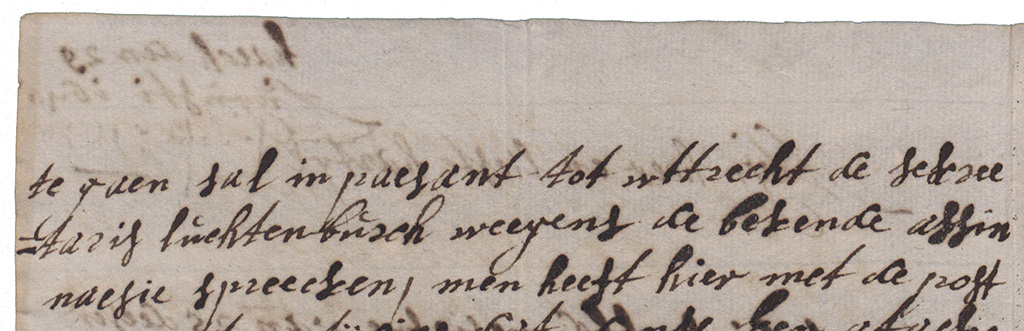 te gaen sal in paesant tot uttrecht de sekree
=taris luchtenburch weegens de bekende assin
naesie spreecken, men heeft hier met de post